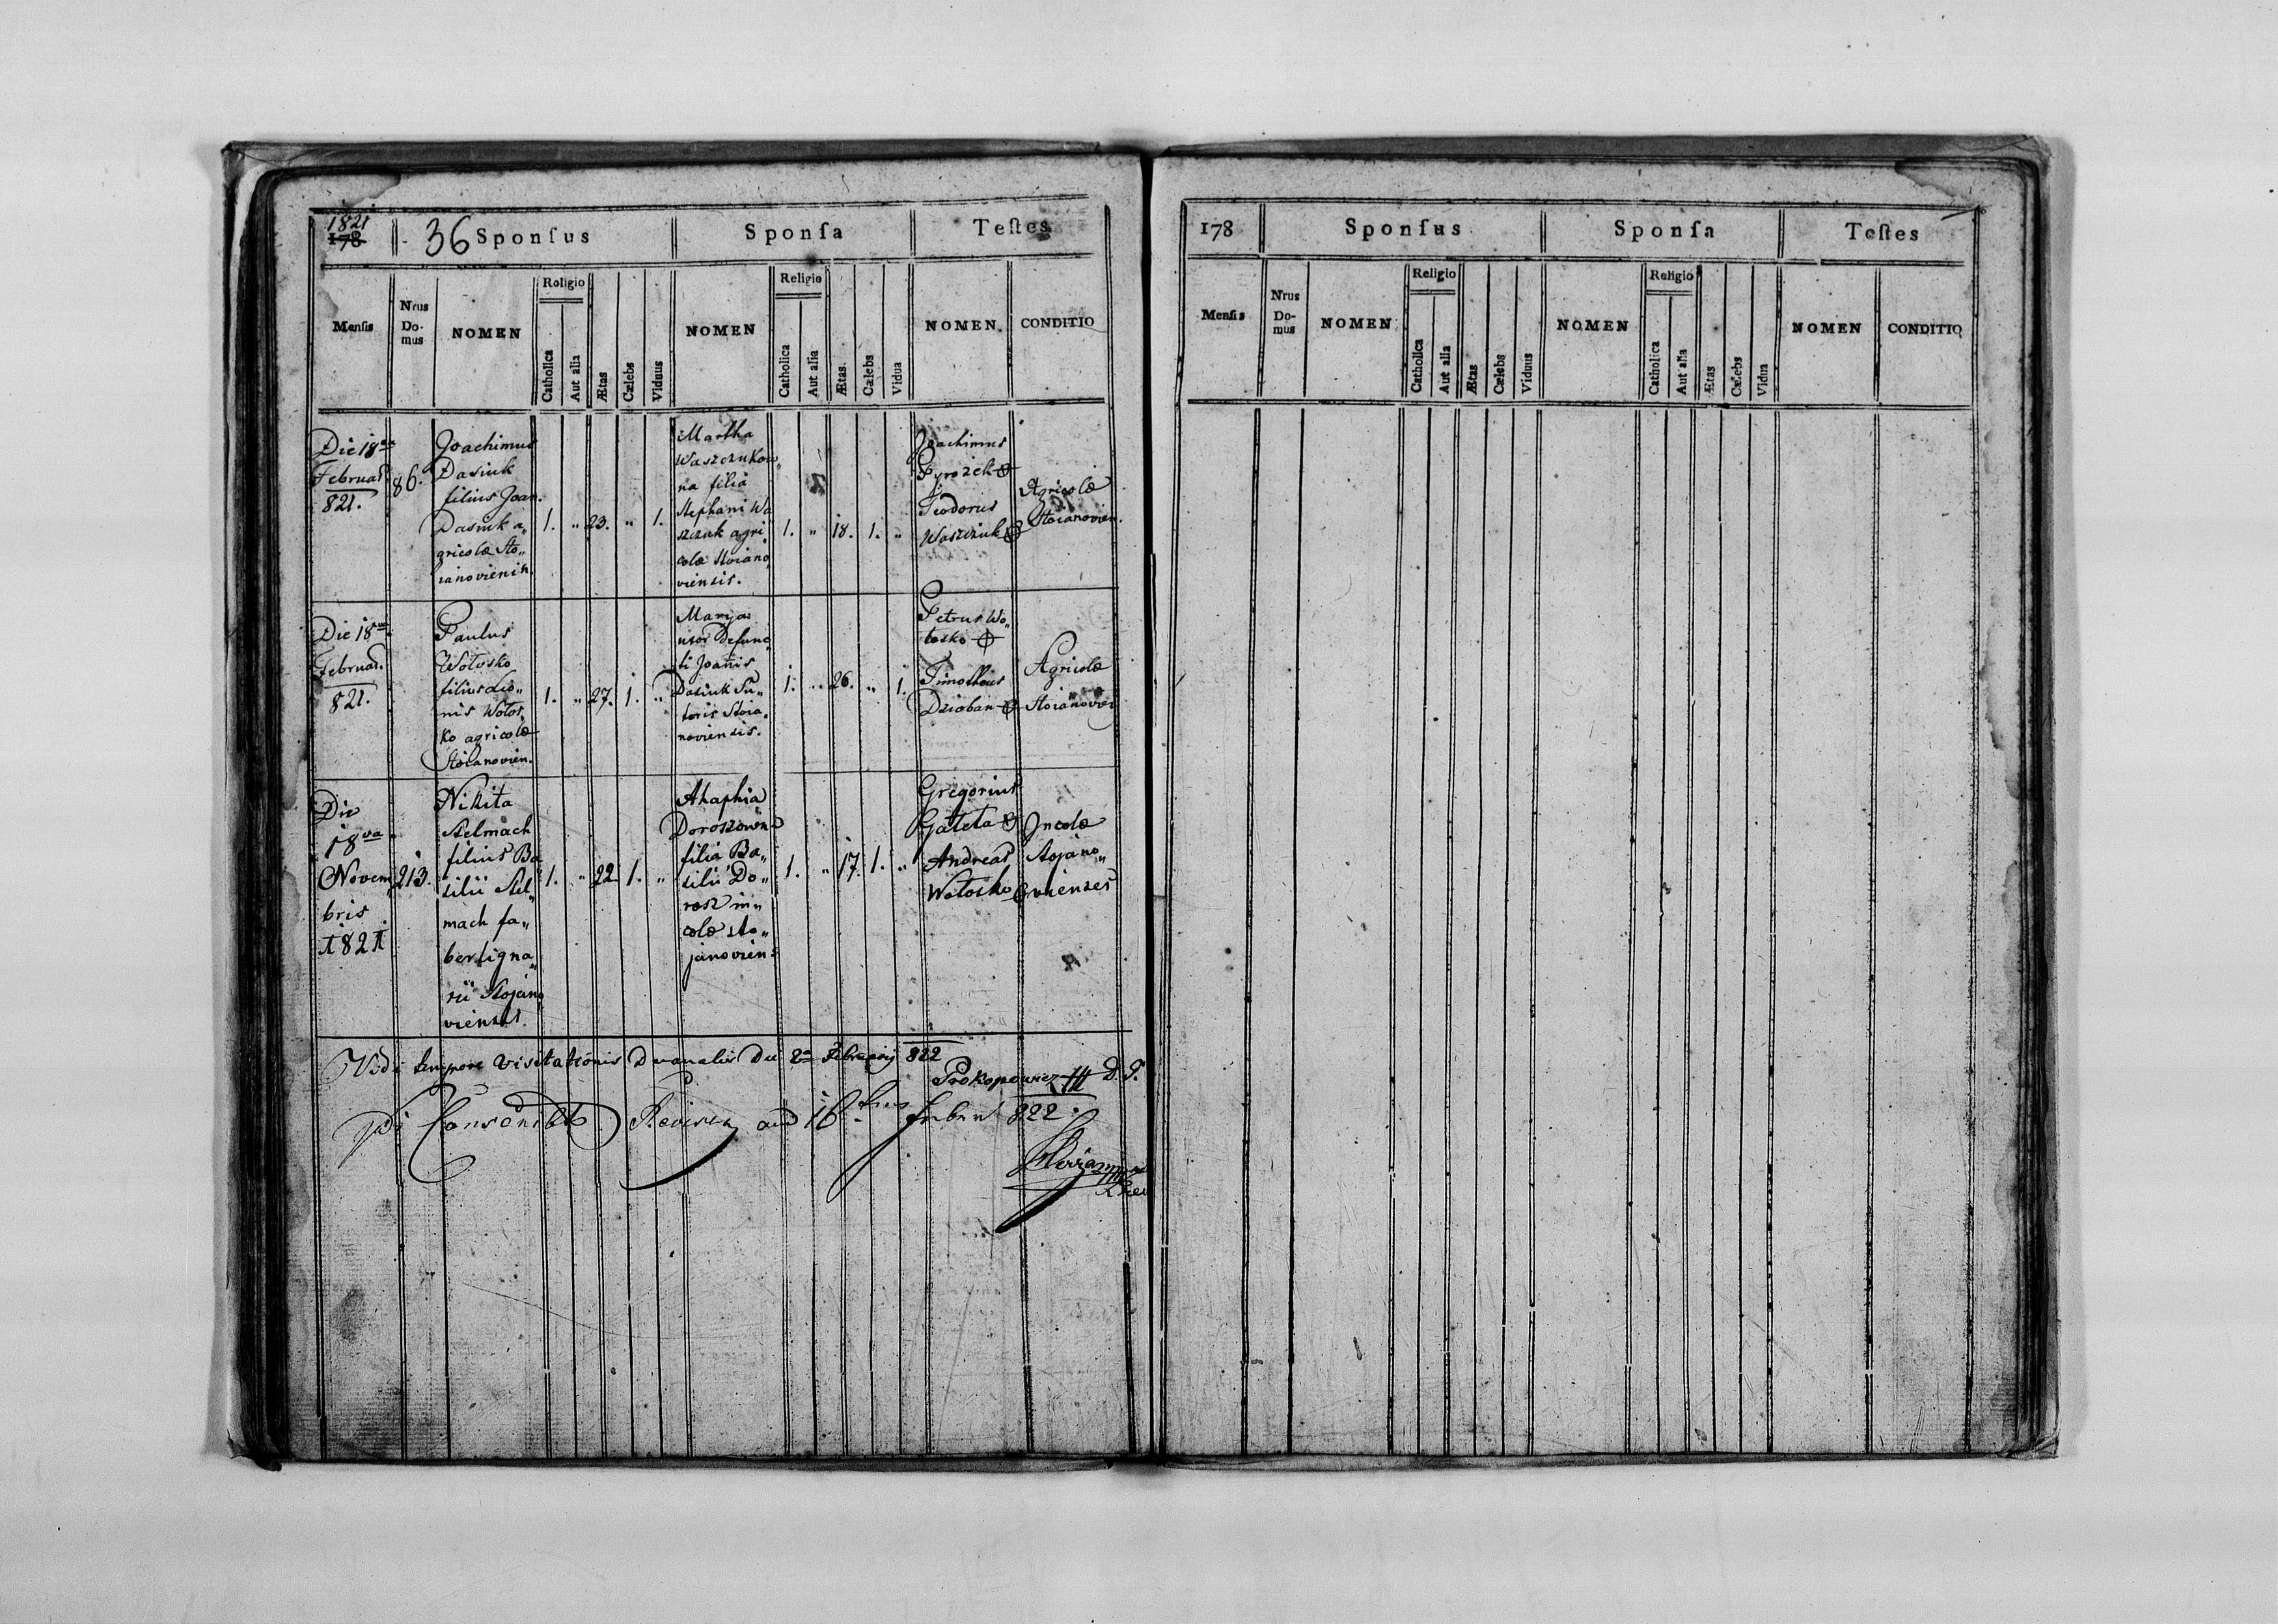 1821
178
36 Sponſus
Sponſa
Teſtes
Menſis
Nrus
Do-
mus
NOMEN
Religio
Catholica
Aut alia
Ætas
Cælebs
Viduus
NOMEN
Religio
Catholica
Aut alia
Ætas
Cælebs
Vidua
NOMEN
CONDITIO
Die 18va
Februar
821.
86.
Joachimus
Dasiuk
filius Joan.
Dasiuk a„
gricolæ Sto„
ianovien
1. „ 23. „ 1.
Martha
Waszczukow„
na filia
Stephani Wa
szczuk agri„
colæ Stoiano
viensis.
1. „ 18. 1. „
Joachimus
Pyrożek
Teodorus
Waszczuk
Agricolæ
Stoianovien.
Die 18va
Februar.
821.
Paulus
Wołosko
filius Leo„
nis Wołos„
ko agricolæ
Stoianovien.
1. „ 27. 1. „
Marya
uxor Defunc„
ti Joañis
Dasiuk Su„
toris Stoia„
noviensis.
1. „ 26. „ 1.
Petrus Wo„
łosko
Timotheus
Dzioban
Agricolæ
Stoianovien
Die
18va
Novem„
bris
1821
213.
Nikita
Stelmach
filius Ba„
silii Stel„
mach fa„
ber ligna„
rii Stojano„
viensis.
1. „ 22. 1. „
Ahaphia
Doroszówna
filia Ba„
silii Do„
rosz in„
colæ Sto„
janovien
1. „ 17. 1. „
Gregorius
Gałeta
Andreas
Wołosko
Incolæ
Stojano„
vienses
Vidi tempore Visitationis Decanalis Die 2a Februarij 822
Prokopowicz D. S.
Revision 16 822
178
Sponſus
Sponſa
Teſtes
Menſis
Nrus
Do-
mus
NOMEN
Religio
Catholica
Aut alia
Ætas
Cælebs
Viduus
NOMEN
Religio
Catholica
Aut alia
Ætas
Cælebs
Vidua
NOMEN
CONDITIO